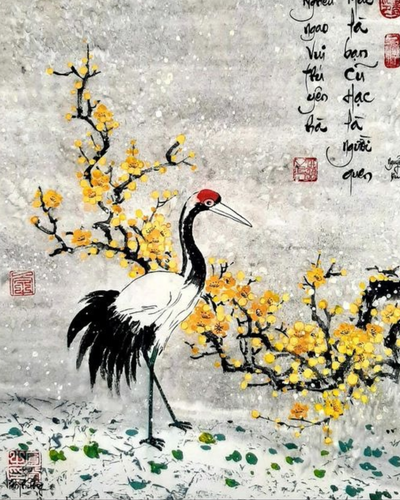 Nghêu ngao vui thú yên hà
Mai là bạn cũ Hạc là người quen